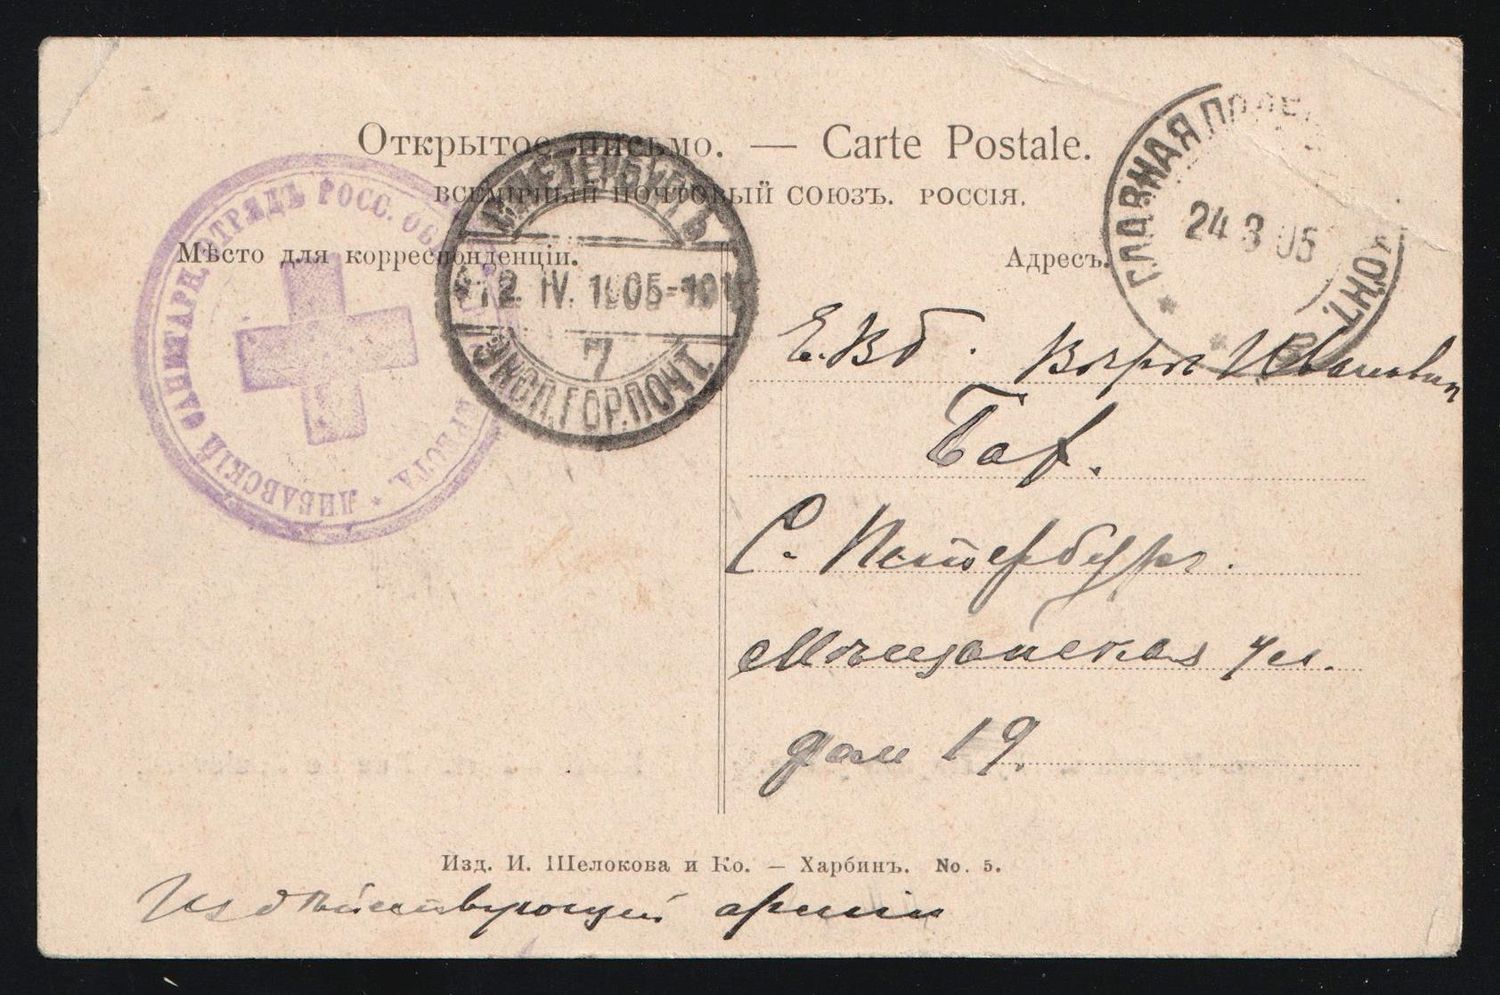 Открытое письмо. — Carte Postale.
ВСЕМІРНЫЙ ПОЧТОВЫЙ СОЮЗЪ. РОССІЯ.
Мѣсто для корреспонденціи.
Адресъ.
ЛИВАВСКІЙ САНИТАРН. ОТРЯДЪ РОСС. КРЕСТА.
С.ПЕТЕРБУРГЪ
12. IV. 1905-10
7
ЭКСП.ГОР.ПОЧТ.
ГЛАВНАЯ ПОЛЕ КОНТ.
24 3 05
Е.Вб. Вѣры Ивановн
С. Петербург.
Мѣщанская ул.
дом 19.
Изд. И. Шелокова и Ко. — Харбинъ. No. 5.
Из дѣйствующей арміи